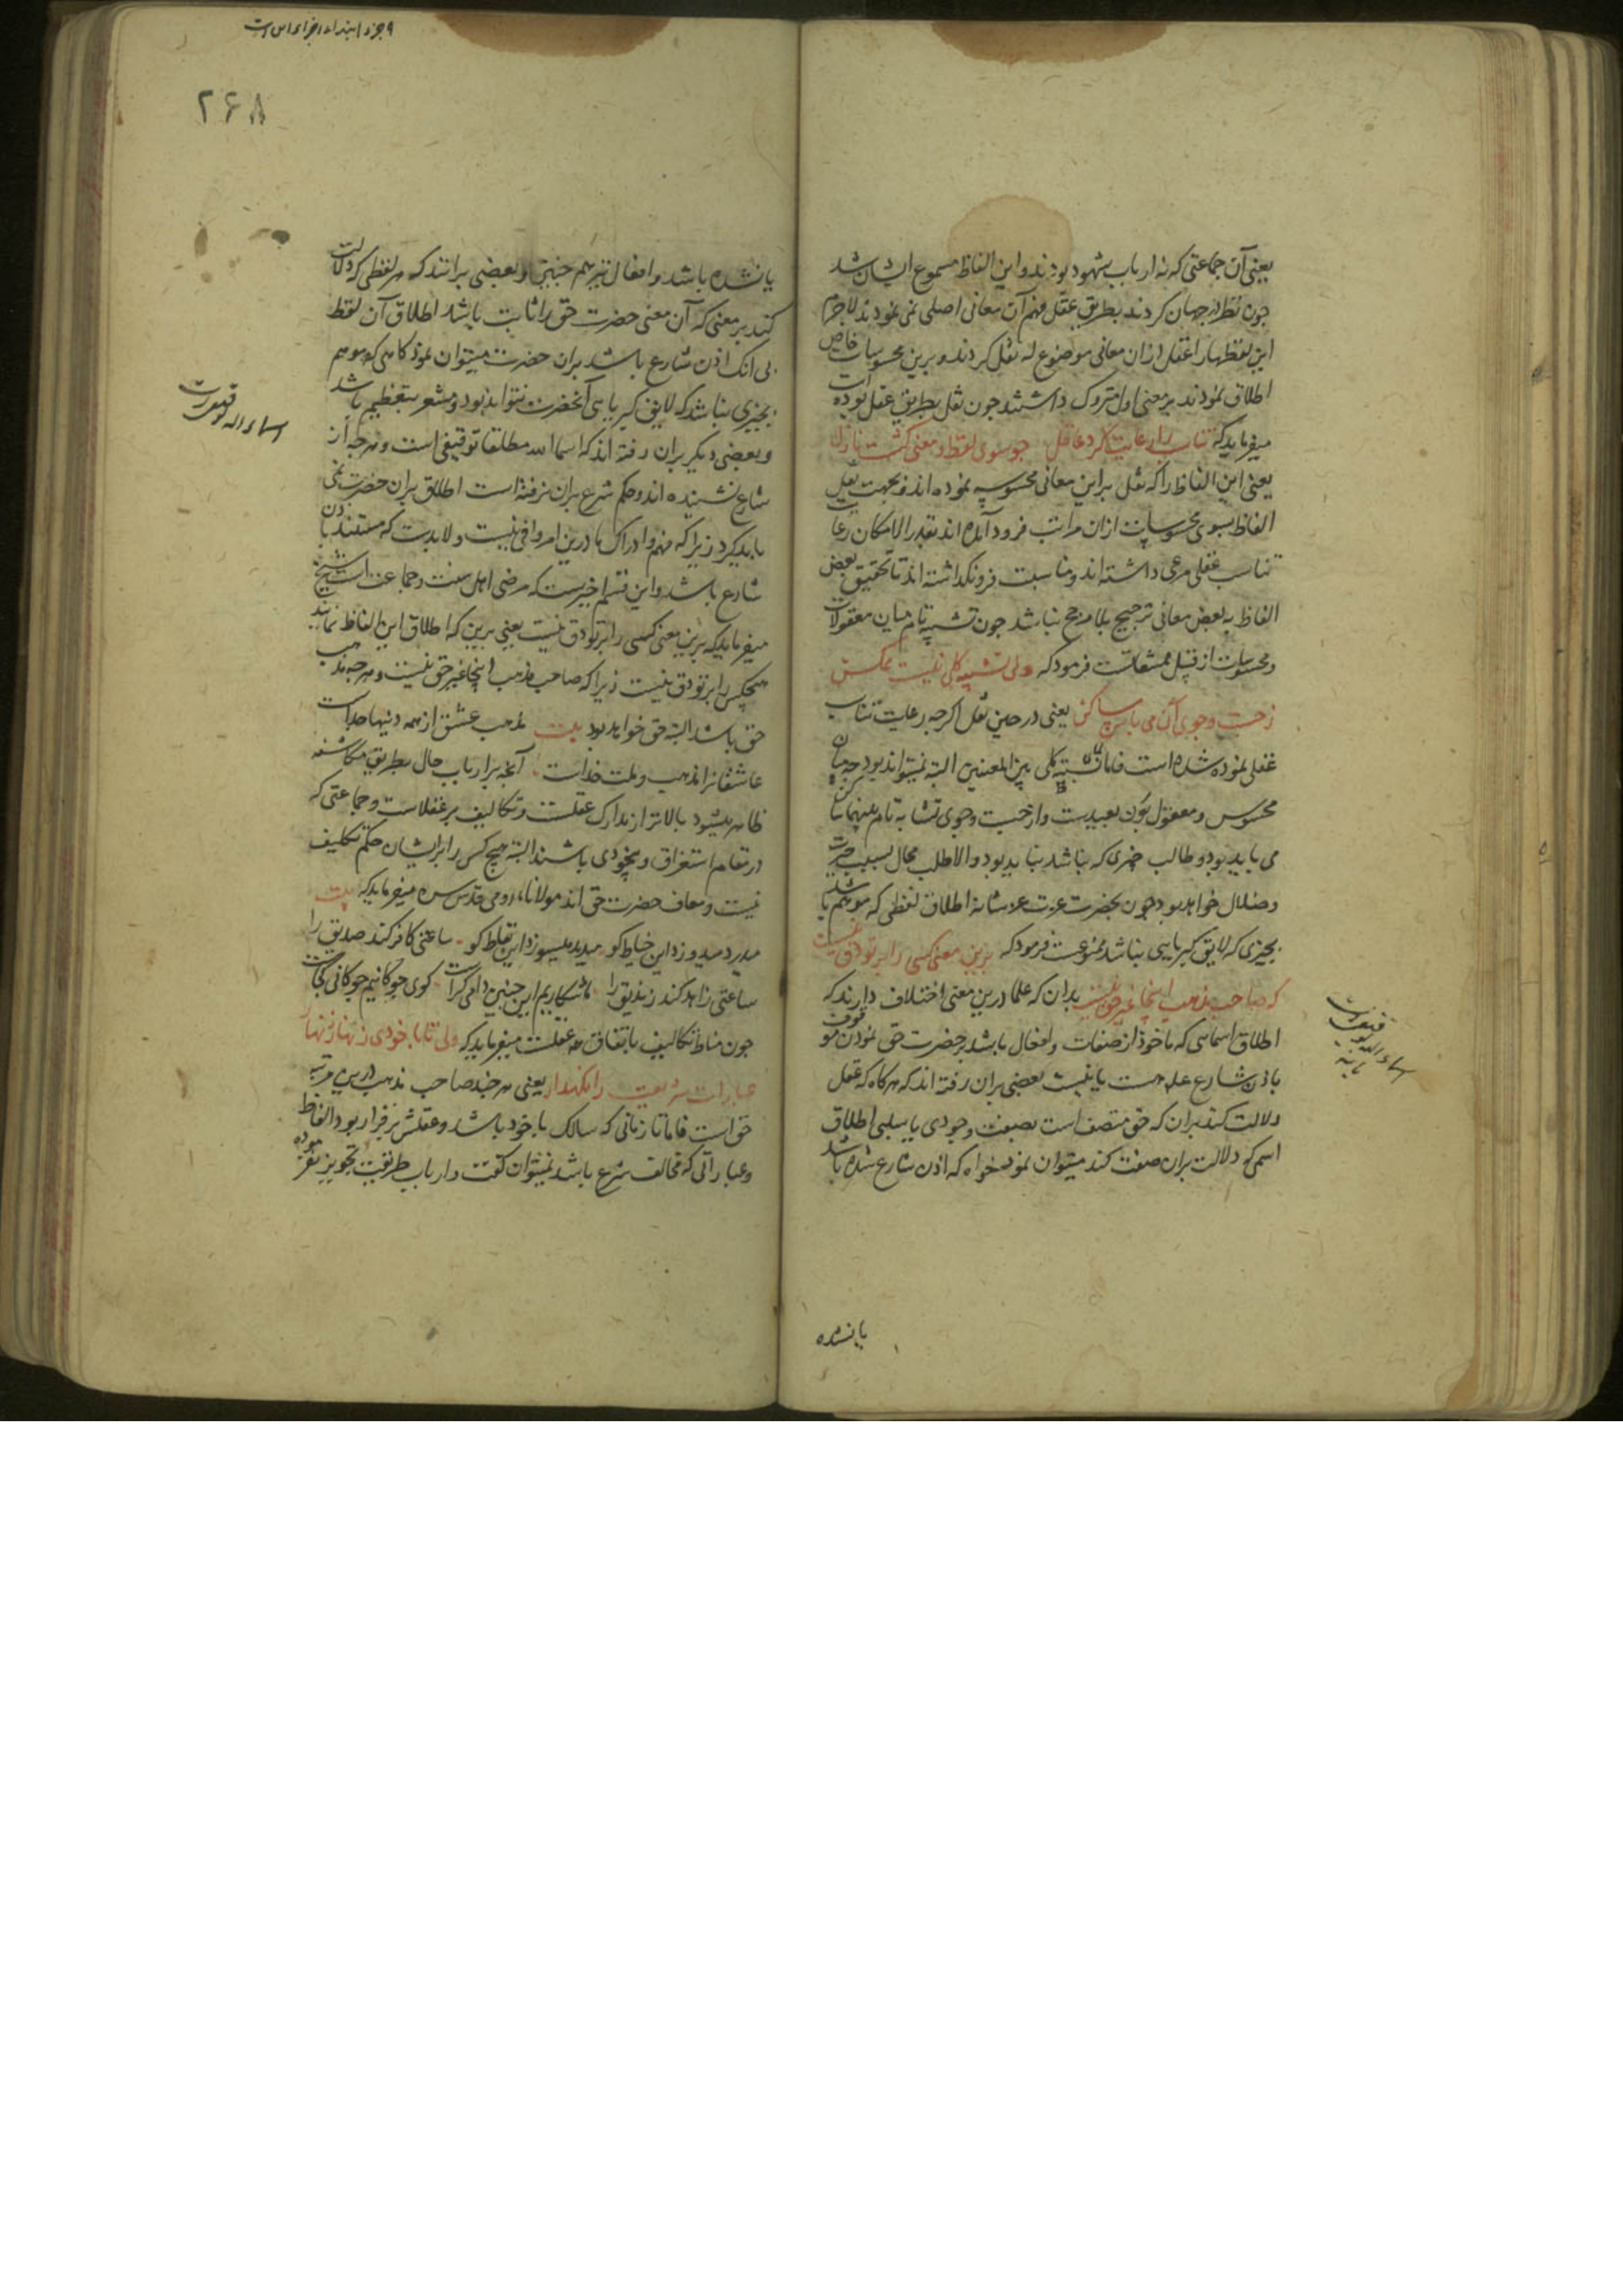 یعنی آن جماعتی که نه ارباب شهود بودند و این الفاظ مسموع ایشان شد
چون نظر در جهان کردند بطریق عقل فهم آن معانی اصلی نمی نمودند لاجرم
این لفظها را عقل ازان معانی موضوع له نقل کردند و برین محسوسات خاص
اطلاق نمودند و معنی اول متروک داشتند چون نقل بطریق عقل بوده است
میفرماید که تناسب را رعایت کرد عاقل چو سوی لفظ و معنی گشت نازل
یعنی این الفاظ را که نقل براین معانی محسوسه نموده اند و بجهت نقل
الفاظ بسوی محسوسات ازان مراتب فرود آمده اند بقدر الامکان رعایت
تناسب عقلی مرعی داشته اند و مناسبت فرو نگذاشته اند تا تحقیق بعض
الفاظ به بعض معانی ترجیح بلا مرجح نباشد چون تشبیه تام میان معقولات
و محسوسات از قبیل ممتنعات است فرمود که ولی تشبیه کلی نیست ممکن
ز جست و جوی آن می باش ساکن یعنی در حین نقل اگرچه رعایت تناسب
عقلی نموده شده است فاما تشبیه کلی بین المعنیین البته نمیتواند بود چه میان
محسوس و معقول بون بعیدست و از جست و جوی تشابه تام بینهما ساکن
می باید بود و طالب چیزی که نباشد نباید بود والا طلب محال بسبب حیرت
و ضلال خواهد بود چون بحضرت عزت عز شانه اطلاق لفظی که موهم باشد
بچیزی که لایق کبریایی نباشد ممنوعست فرمود که برین معنی کسی را بر تو دق نیست
که صاحب مذهب اینجا غیر حق نیست بدان که علما درین معنی اختلاف دارند که
اطلاق اسمایی که ماخوذ از صفات و افعال باشد بر حضرت حق نمودن موقوف
باذن شارع علیه هست یا نیست بعضی بران رفته اند که هرگاه که عقل
دلالت کند بران که حق متصف است بصفت وجودی یا سلبی اطلاق
اسمی که دلالت بران صفت کند میتوان نمود خواه که اذن شارع شده باشد
اسماء الله
توقیفیست
یا نه
یا نشده
۹ جزء ابتداء اجزاء اس است
۲۶۸
یا نشده باشد و افعال نیز هم چنین و بعضی برانند که هر لفظی که دلالت
کند بر معنی که آن معنی حضرت حق را ثابت باشد اطلاق آن لفظ
بی آنک اذن شارع باشد بران حضرت میتوان نمود گاهی که موهم
بچیزی نباشد که لایق کبریایی آنحضرت نتواند بود و مشعر بتعظیم باشد
و بعضی دیگر بران رفته اند که اسما الله مطلقا توقیفی است و هرچه از
شارع نشنیده اند و حکم شرع بران نرفته است اطلاق بران حضرت نمی
باید کرد زیرا که فهم و ادراک ما درین امر وافی نیست و لابدست که مستند باذن
شارع باشد و این قسم اخیرست که مرضی اهل سنت و جماعت است شیخ
میفرماید که برین معنی کسی را بر تو دق نیست یعنی برین که اطلاق این الفاظ نمایند
هیچکس را بر تو دق نیست زیرا که صاحب مذهب اینجا غیر حق نیست و هرچه مذهب
حق باشد البته حق خواهد بود بیت مذهب عشق از همه دینها جداست
عاشقانرا مذهب و ملت خداست آنچه بر ارباب حال بطریق مکاشفه
ظاهر میشود بالاتر از مدارک عقلست و تکالیف بر عقلاست و جماعتی که
در مقام استغراق و بیخودی باشند البته هیچ کس را بر ایشان حکم تکلیف
نیست و معاف حضرت حق اند مولاناء رومی قدس سره میفرماید که بیت
میدرد میدوزد این خیاط کو میدمد میسوزد این نفاط کو ساعتی کافر کند صدیق را
ساعتی زاهد کند زندیق را ما شکاریم این چنین دامی کراست گوی چوگانیم چوگانی کجاست
چون مناط تکالیف باتفاق همه عقلست میفرماید که ولی تا با خودی زنهار زنهار
عبارات شریعت را نگهدار یعنی هر چند صاحب مذهب درین مرتبه
حق است فاما تا زمانی که سالک با خود باشد و عقلش برقرار بود الفاظ
و عباراتی که مخالف شرع باشد نمیتوان گفت و ارباب طریقت تجویز نفرموده
اسماء الله توقیفیست